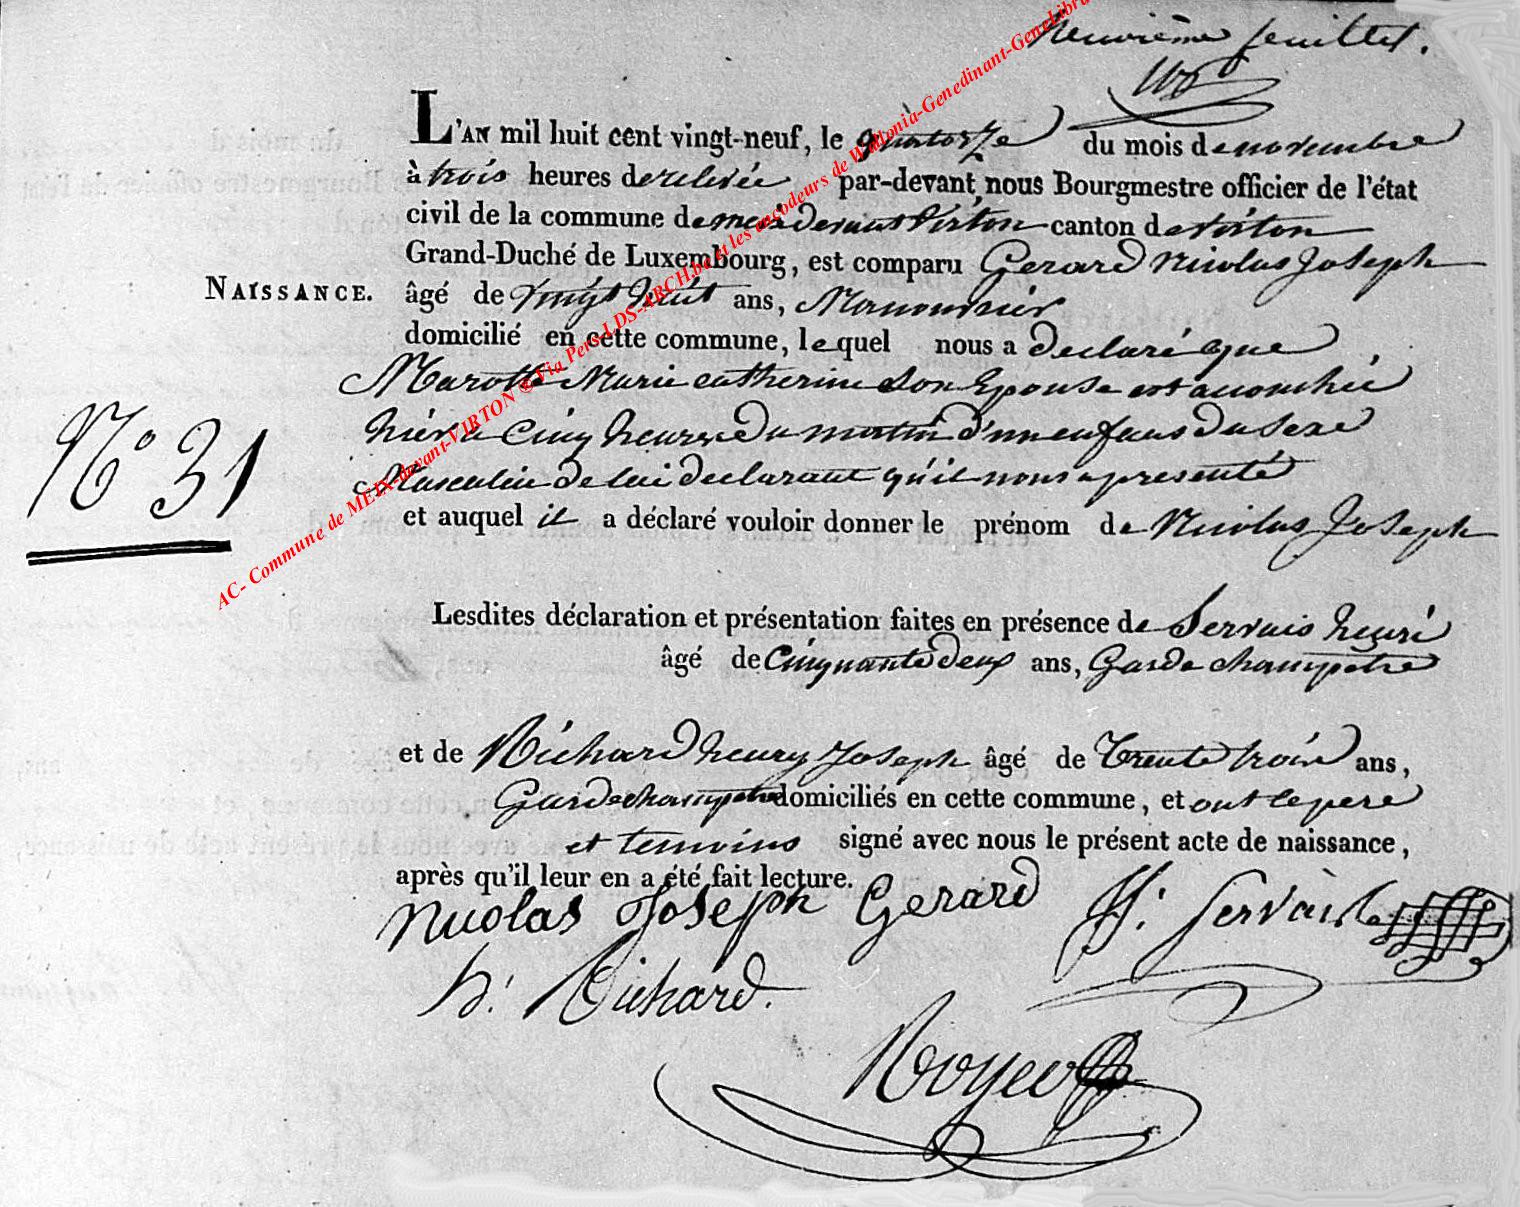 Neuvième feuillet.
L'AN mil huit cent vingt-neuf, le quatorze du mois de novembre
à trois heures de relevée par-devant nous Bourgmestre officier de l'état
civil de la commune de meix devant Virton canton de virton
Grand-Duché de Luxembourg, est comparu Gerard nicolas Joseph
NAISSANCE. âgé de vingt huit ans, Manouvrier
domicilié en cette commune, lequel nous a declaré que
Marotte Marie catherine son Epouse est accouchée
hier a Cinq heures du matin d'un enfant du sexe
Masculin de lui declarant qu'il nous a presenté
N° 31
et auquel il a déclaré vouloir donner le prénom de Nicolas Joseph
Lesdites déclaration et présentation faites en présence de Servais henri
âgé de Cinquante deux ans, Garde champetre
et de Richard henry Joseph âgé de Trente trois ans,
Garde champetre domiciliés en cette commune, et ont le pere
et temoins signé avec nous le présent acte de naissance,
après qu'il leur en a été fait lecture.
Nicolas Joseph Gerard H. Servais
h. Richard.
Royer
AC- Commune de MEIX-devant-VIRTON ® Via Pers-LDS-ARCH.be et les encodeurs de Wallonia-Genedinant-GeneLibra